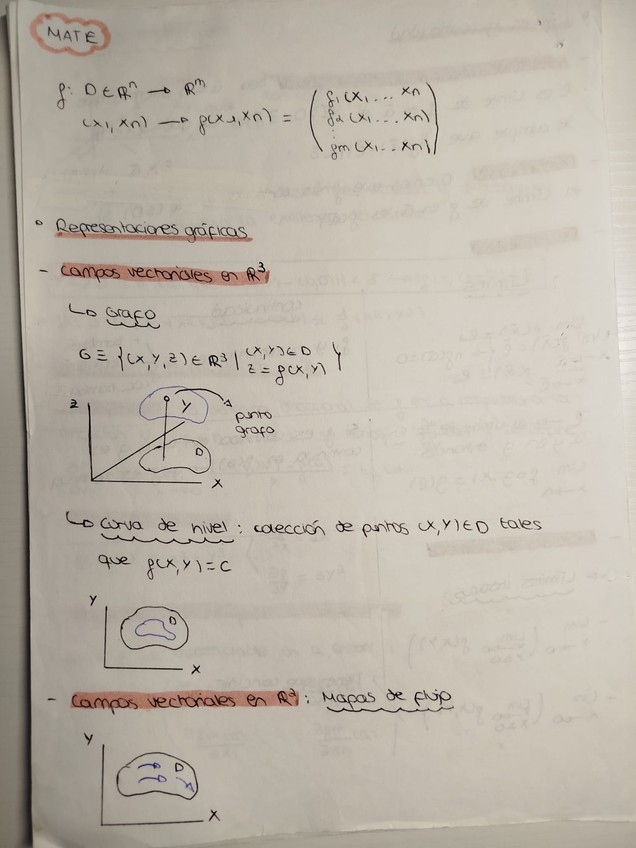 MATE
f: D ∈ ℝⁿ → ℝᵐ
(x₁, xn) → f(x₁, xn) = ( f₁(x₁ ... xn
f₂(x₁ ... xn)
⋮
fm(x₁ ... xn) )
° Representaciones gráficas
- Campos vectoriales en ℝ³
↳ Grafo
G ≡ {(x,y,z) ∈ ℝ³ | (x,y) ∈ D
z = f(x,y) }
z
y
punto
grafo
D
x
↳ Curva de nivel : colección de puntos (x,y) ∈ D tales
que f(x,y) = C
y
D
x
- Campos vectoriales en ℝ² : Mapas de flujo
y
D
x